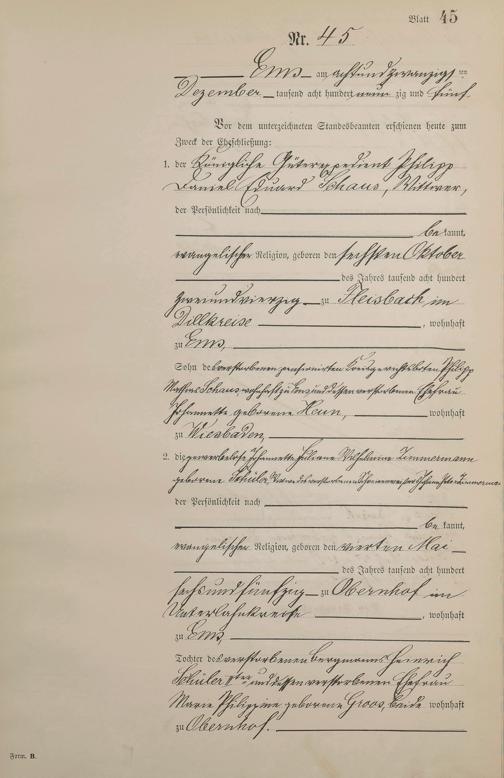 Blatt 45
Nr. 45
Ems am achtundzwanzigs ten
Dezember tausend acht hundert neun zig und fünf
Vor dem unterzeichneten Standesbeamten erschienen heute zum
Zweck der Eheschließung:
1. der Königliche Güterexpedient Philipp
Daniel Eduard Schaus, Wittwer,
der Persönlichkeit nach
be kannt,
evangelischer Religion, geboren den sechsten Oktober
des Jahres tausend acht hundert
zweiundvierzig zu Fleisbach, im
Dillkreise, wohnhaft
zu Ems,
Sohn des verstorbenen pensionirten Philipp
Schaus, wohnhaft zu und dessen verstorbenen Ehefrau
Johannette geborene Heun, wohnhaft
zu Wiesbaden,
2. die gewerbelose Johannette Wilhelmine Zimmermann
geborene Schüler, Zimmermann
der Persönlichkeit nach
be kannt,
evangelischer Religion, geboren den vierten Mai
des Jahres tausend acht hundert
sechsundfünfzig zu Obernhof im
Unterlahnkreise, wohnhaft
zu Ems,
Tochter des verstorbenen Bergmanns Heinrich
Schüler und dessen verstorbenen Ehefrau
Marie Philippine geborene Groos, beide wohnhaft
zu Obernhof.
Form. B.